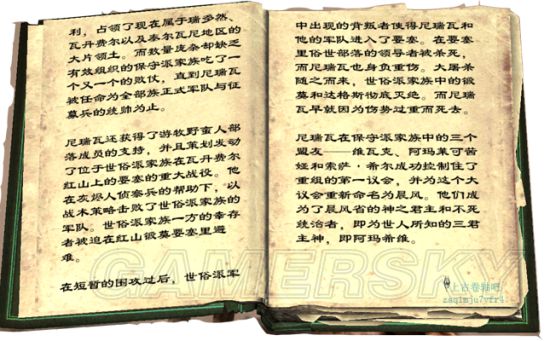 利，占领了现在属于瑞多然、
瓦丹费尔以及泰尔瓦尼地区的
大片领土。而数量庞杂却缺乏
有效组织的保守派家族吃了一
个又一个的败仗，直到尼瑞瓦
被任命为全部族正式军队与征
募兵的统帅为止。
尼瑞瓦还获得了游牧野蛮人部
落成员的支持，并且策划发动
了位于世俗派家族在瓦丹费尔
红山上的要塞的重大战役。他
在灰烬人侦察兵的帮助下，以
战术策略击败了世俗派家族的
军队。世俗派家族一方的幸存
者被迫在红山锻莫要塞里避
难。
在短暂的围攻过后，世俗派军
中出现的背叛者使得尼瑞瓦和
他的军队进入了要塞。在要塞
里俗世部落的领导者被杀死，
而尼瑞瓦也身负重伤。大屠杀
随之而来，世俗派家族中的锻
莫和达格斯彻底灭绝。而尼瑞
瓦早就因为伤势过重而死去。
尼瑞瓦在保守派家族中的三个
盟友——维瓦克、阿玛莱可茜
娅和索萨·希尔成功控制住了
重组的第一议会，并为这个大
议会重新命名为晨风。他们成
为了晨风省的神之君主和不死
统治者，即为世人所知的三君
主神，即阿玛希维。
GAMERSKY
上古卷轴吧
zaqimju7yfr4